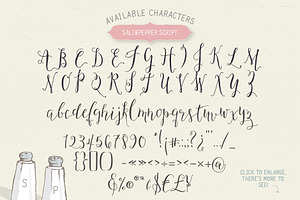 AVAILABLE CHARACTERS
SALT&PEPPER SCRIPT
A B C D E F G H I J K L M
N O P Q R S T U V W X Y Z
abcdefghijklmnopqrstuvwxyz
1234567890
S P
CLICK TO ENLARGE,
THERE'S MORE TO
SEE!